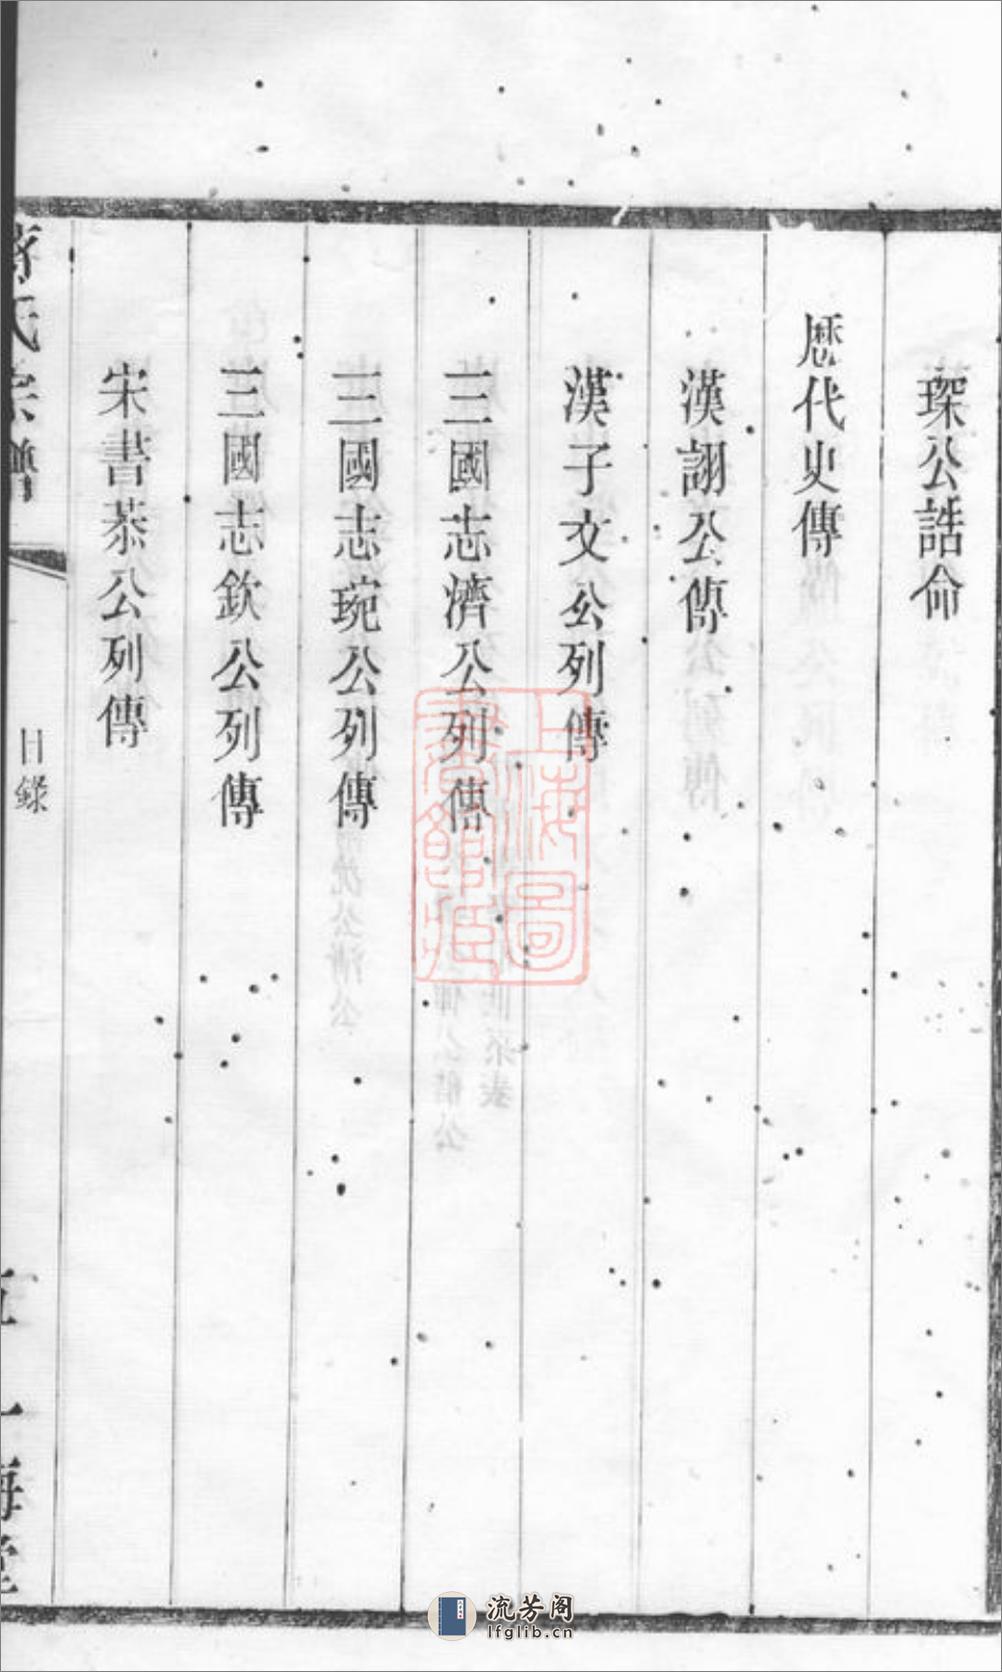 琛公誥命
歷代史傳
漢詡公傳
漢子文公列傳
三國志濟公列傳
三國志琬公列傳
三國志欽公列傳
宋書恭公列傳
氏宗譜
目錄
五
一梅堂
上海圖
書館藏
流芳阁
lfglib.cn